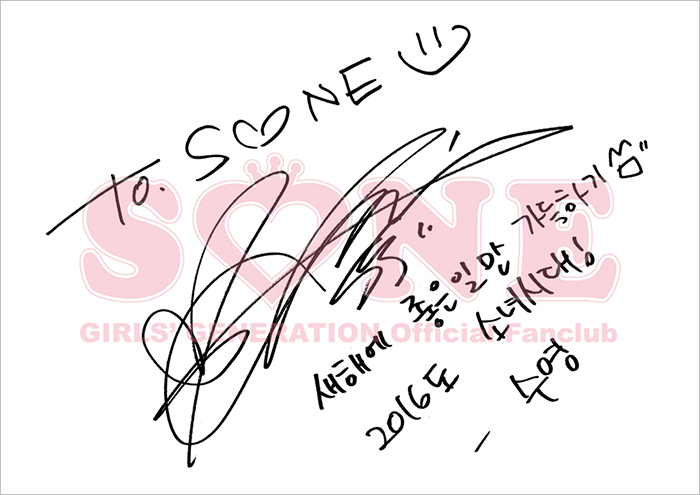 To. S♡NE
SONE
GIRLS' GENERATION Official Fanclub
새해에 좋은일만 가득하기
2016도 소녀시대!
- 수영